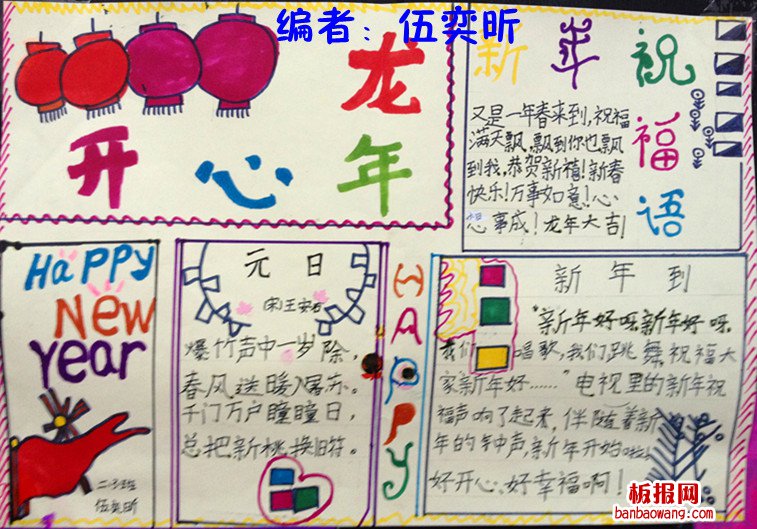 编者：伍奕昕
龙
开心年
新年祝
福
语
又是一年春来到，祝福
满天飘，飘到你也飘
到我，恭贺新禧！新春
快乐！万事如意！心
想事成！龙年大吉！
HaPPy
New
year
二·3班
伍奕昕
元日
(宋)王安石
爆竹声中一岁除，
春风送暖入屠苏。
千门万户瞳瞳日，
总把新桃换旧符。
HAPPY
新年到
“新年好呀，新年好呀，
我们唱歌，我们跳舞，祝福大
家新年好……”电视里的新年祝
福声响了起来，伴随着新
年的钟声，新年开始啦，
好开心、好幸福啊！
板报网
banbaowang.com